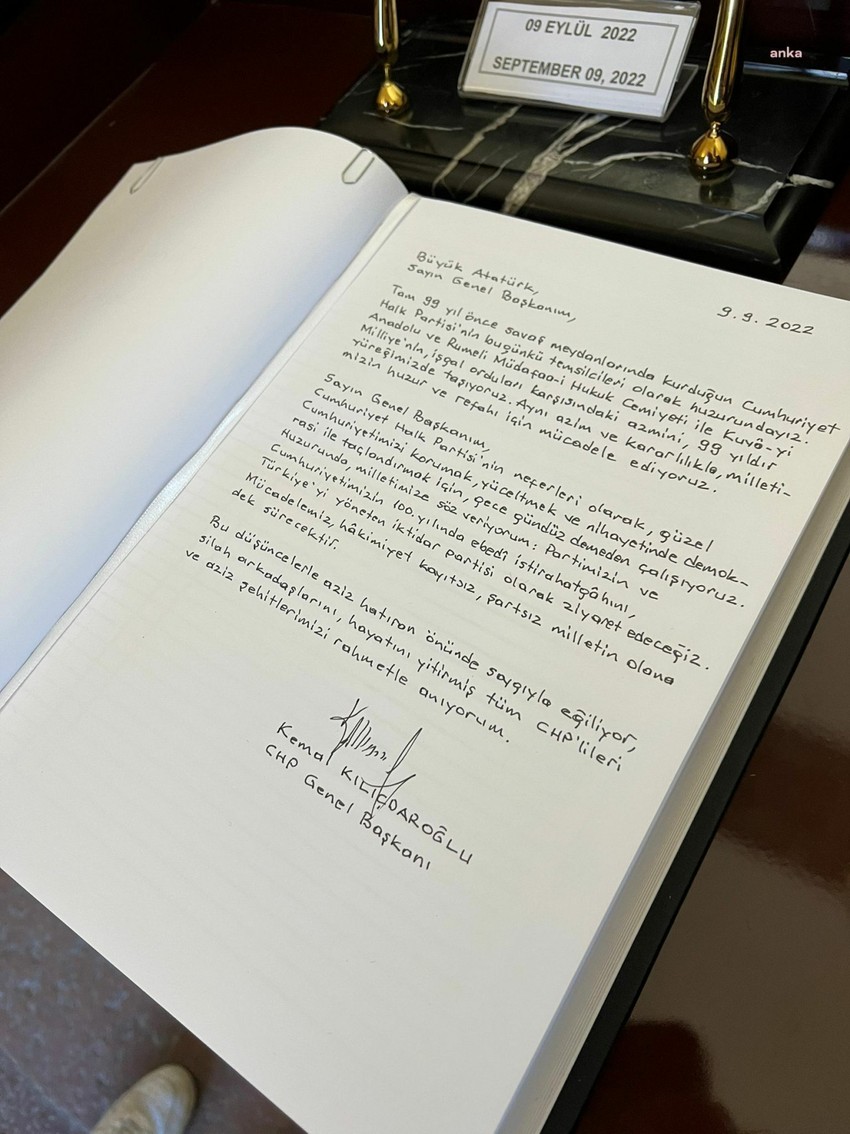 09 EYLÜL 2022
SEPTEMBER 09, 2022
anka
9.9.2022
Büyük Atatürk,
Sayın Genel Başkanım,
Tam 99 yıl önce savaş meydanlarında kurduğun Cumhuriyet
Halk Partisi'nin bugünkü temsilcileri olarak huzurundayız.
Anadolu ve Rumeli Müdafaa-i Hukuk Cemiyeti ile Kuvâ-yi
Milliye'nin, işgal orduları karşısındaki azmini, 99 yıldır
yüreğimizde taşıyoruz. Aynı azim ve kararlılıkla, milleti-
mizin huzur ve refahı için mücadele ediyoruz.
Sayın Genel Başkanım,
Cumhuriyet Halk Partisi'nin neferleri olarak, güzel
Cumhuriyetimizi korumak, yüceltmek ve nihayetinde demok-
rasi ile taçlandırmak için, gece gündüz demeden çalışıyoruz.
Huzurunda, milletimize söz veriyorum: Partimizin ve
Cumhuriyetimizin 100. yılında ebedî istirahatgâhını,
Türkiye'yi yöneten iktidar partisi olarak ziyaret edeceğiz.
Mücadelemiz, hâkimiyet kayıtsız, şartsız milletin olana
dek sürecektir.
Bu düşüncelerle aziz hatıran önünde saygıyla eğiliyor,
silah arkadaşlarını, hayatını yitirmiş tüm CHP'lileri
ve aziz şehitlerimizi rahmetle anıyorum.
Kemal KILIÇDAROĞLU
CHP Genel Başkanı